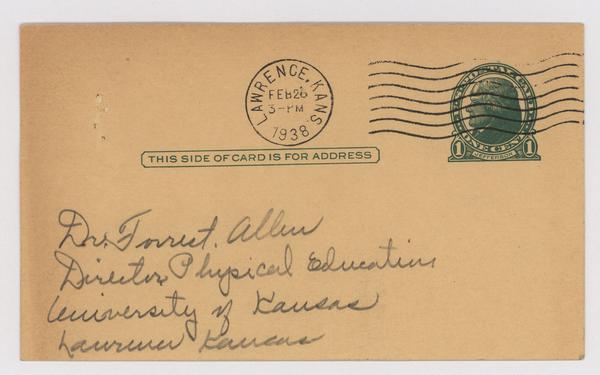 LAWRENCE, KANS.
FEB 26
3-PM
1938
1 JEFFERSON 1
ONE CENT
THIS SIDE OF CARD IS FOR ADDRESS
Dr. Forrest. Allen
Director Physical Education
University of Kansas
Lawrence Kansas